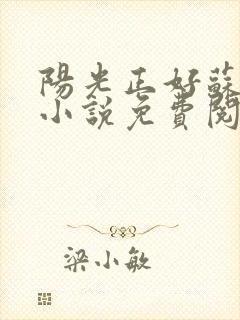 陽光正好蘇
小說免費閱
梁小敏